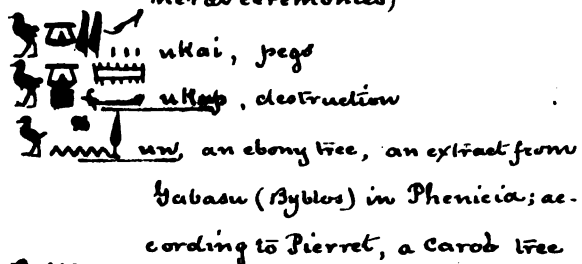 ukai, pegs
ukap, destruction
un, an ebony tree, an extract from
Gabasu (Byblos) in Phenicia; ac-
cording to Pierret, a Carob tree